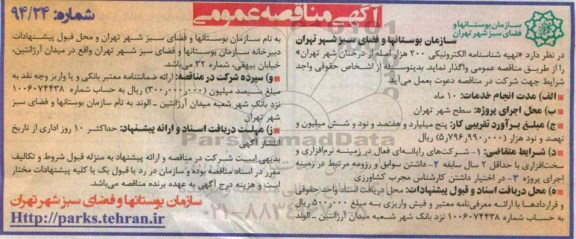 آگهی مناقصه عمومی
شماره: ۹۴/۲۴
سازمان بوستانها و
فضای سبز شهر تهران
سازمان بوستانها و فضای سبز شهر تهران
در نظر دارد «تهیه شناسنامه الکترونیکی ۲۰۰ هزار اصله از درختان شهر تهران»
را از طریق مناقصه عمومی واگذار نماید. بدینوسیله از اشخاص حقوقی واجد
شرایط جهت شرکت در مناقصه دعوت بعمل می‌آید
الف) مدت انجام خدمات: ۱۰ ماه
ب) محل اجرای پروژه: سطح شهر تهران
ج) مبلغ برآورد تقریبی کار: پنج میلیارد و هفتصد و نود و شش میلیون و
نهصد و نود هزار (۵,۷۹۶,۹۹۰,۰۰۰) ریال
د) شرایط متقاضی: ۱- شرکت‌های رایانه‌ای فعال در زمینه نرم‌افزاری و
سخت‌افزاری با حداقل ۲ سال سابقه ۲- داشتن سوابق و رزومه مرتبط در زمینه
اجرای پروژه ۳- در اختیار داشتن کارشناس مجرب کشاورزی
ه) محل دریافت اسناد و قبول پیشنهادات: محل دریافت اسناد واحد حقوقی
و قراردادها با ارائه معرفی‌نامه معتبر و فیش واریزی به مبلغ ۵۰۰,۰۰۰ ریال
به حساب شماره ۱۰۰۶۰۷۴۴۳۸ نزد بانک شهر شعبه میدان آرژانتین - الوند
به نام سازمان بوستانها و فضای سبز شهر تهران و محل قبول پیشنهادات
دبیرخانه سازمان بوستانها و فضای سبز شهر تهران واقع در میدان آرژانتین،
خیابان بیهقی، شماره ۳۲ می‌باشد.
و) سپرده شرکت در مناقصه: ارائه ضمانتنامه معتبر بانکی و یا واریز وجه نقد به
مبلغ سیصد میلیون (۳۰۰,۰۰۰,۰۰۰) ریال به حساب شماره ۱۰۰۶۰۷۴۴۳۸
نزد بانک شهر شعبه میدان آرژانتین - الوند به نام سازمان بوستانها و فضای سبز
شهر تهران
ز) مهلت دریافت اسناد و ارائه پیشنهاد: حداکثر ۱۰ روز اداری از تاریخ
انتشار آگهی
بدیهی است شرکت در مناقصه و ارائه پیشنهاد به منزله قبول شروط و تکالیف
مقرر در اسناد مناقصه بوده و سازمان در رد یا قبول یک یا کلیه پیشنهادات مختار
است و هزینه درج آگهی به عهده برنده مناقصه می‌باشد.
سازمان بوستانها و فضای سبز شهر تهران
Http://parks.tehran.ir
ParsNamadData